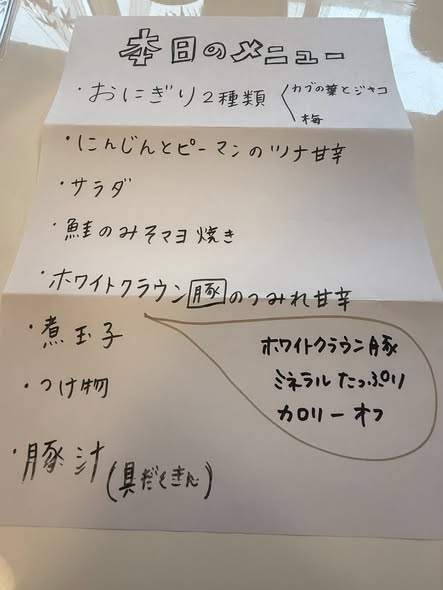 本日のメニュー
・おにぎり2種類
カブの葉とジャコ
梅
・にんじんとピーマンのツナ甘辛
・サラダ
・鮭のみそマヨ焼き
・ホワイトクラウン豚のつみれ甘辛
・煮玉子
・つけ物
・豚汁(具だくさん)
ホワイトクラウン豚
ミネラルたっぷり
カロリーオフ